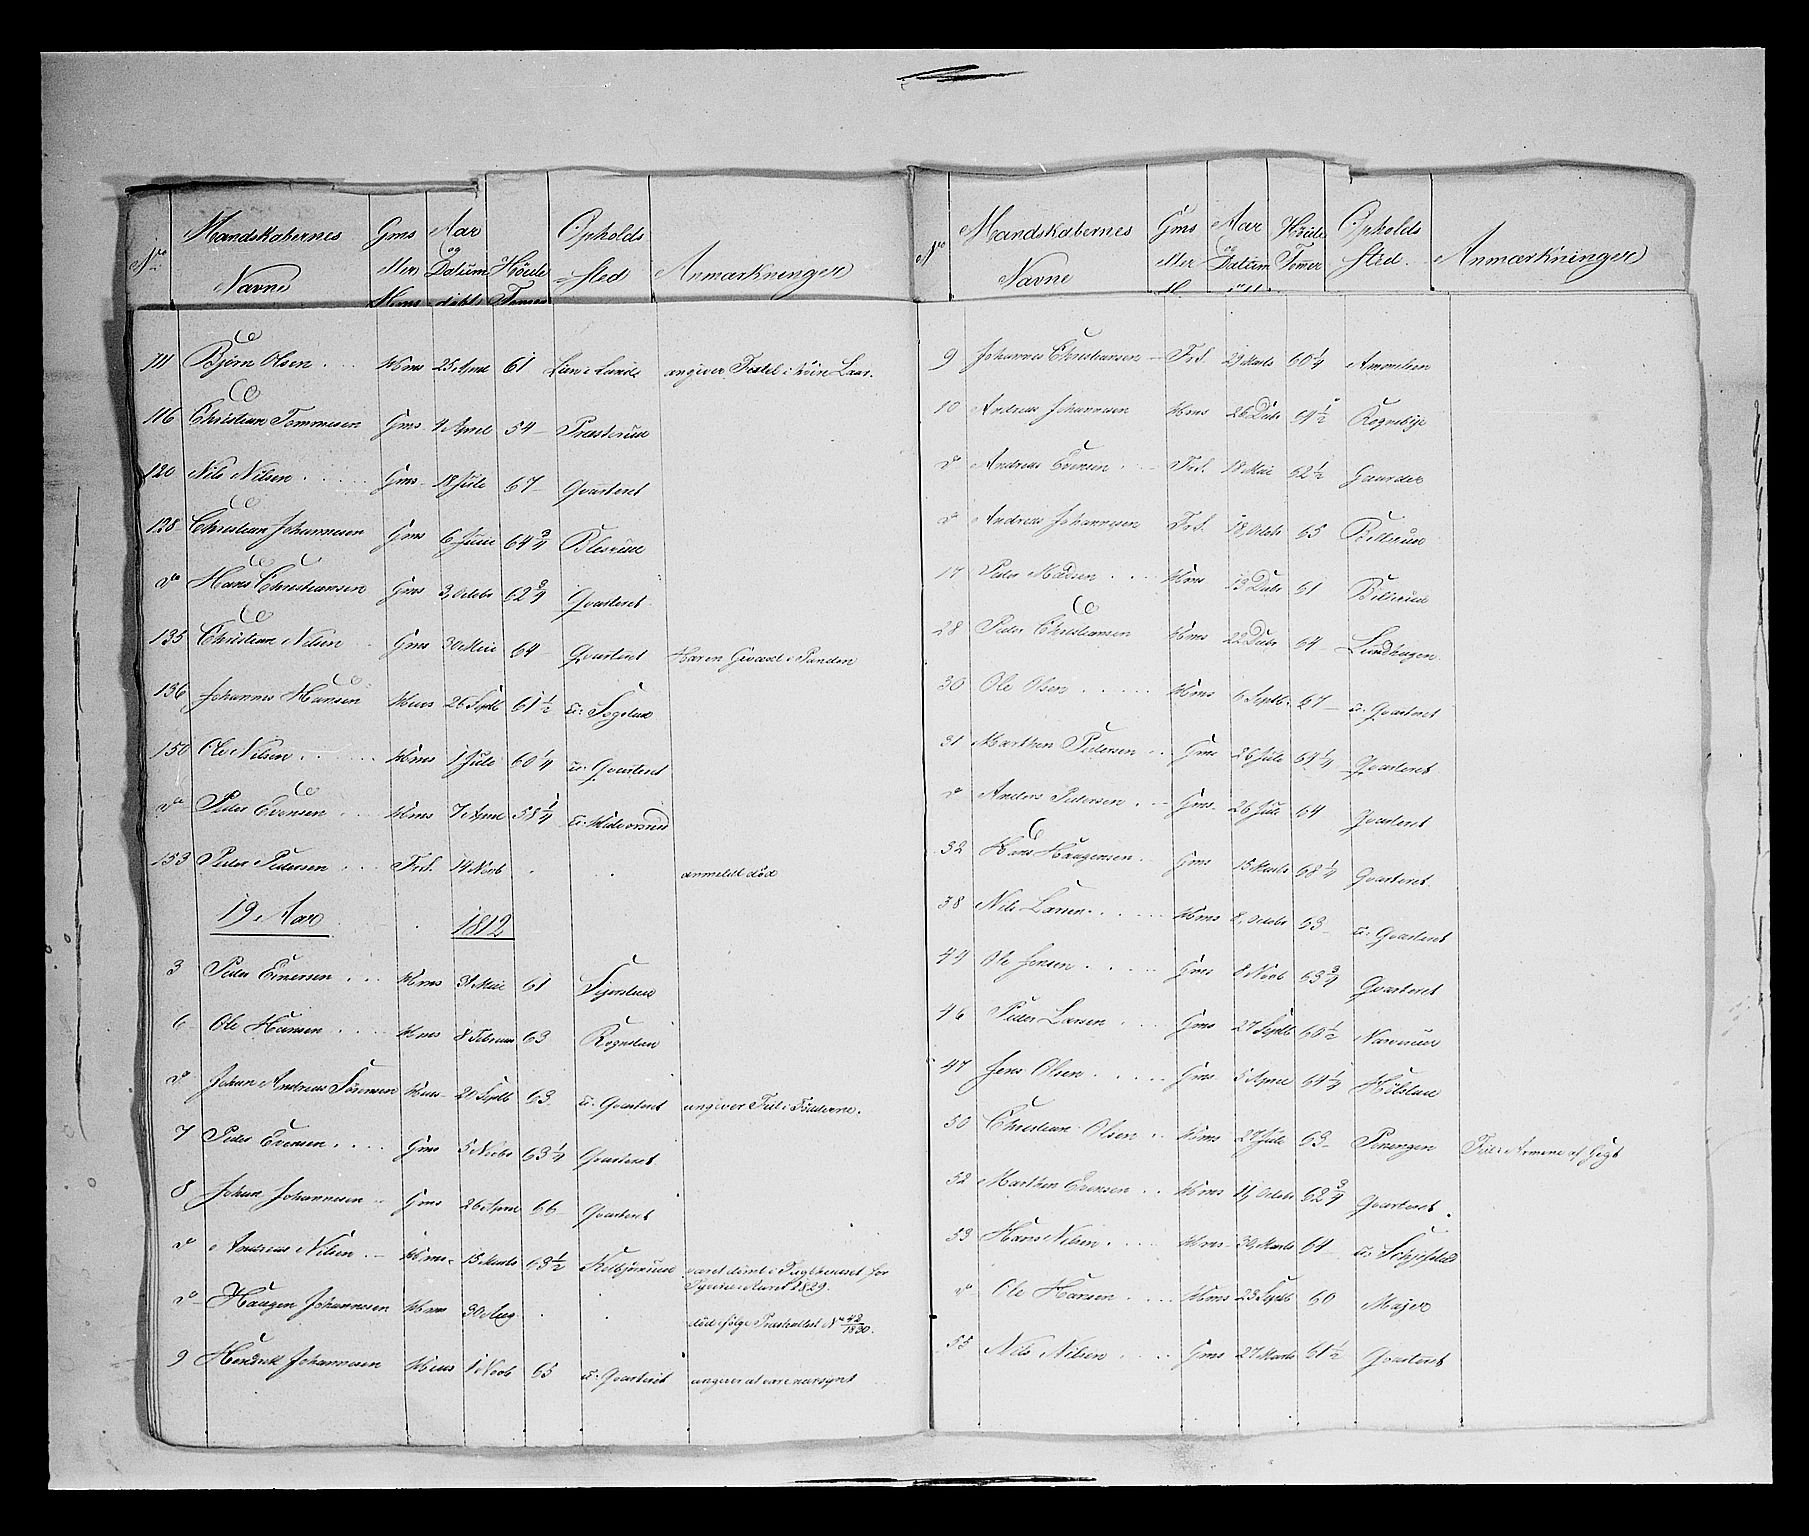 No Mandskabernes Navne Gms Mer Aar og Datum Høide Opholds sted Anmærkninger
111 Bjørn Olsen Hms 25 April 61 Lien i Lunde angiver Feilel i høire Laar.
116 Christian Tommesen Gms 4 April 54 Præsterud
120 Nils Nilsen Gms 18 Juli 67 Qvarteret
128 Christian Johannesen Gms 6 Junii 64 3/4 Blesrud
do Hans Christiansen Gms 3 Octobr 62 3/4 Qvarteret
135 Christian Nilsen Gms 30 Mai 64 Qvarteret Har en Gevæxt i Panden
136 Johannes Hansen Hms 26 Septb 61 1/2
150 Ole Nilsen Hms 1 Juli 60 1/4 u: Qvarteret
do Peder Evensen Hms 7 April 58 1/4
153 Peder Pedersen Frs. 14 Novb anmeldt død
19 Aar 1812
3 Peder Einersen Hms 31 Mai 61
6 Ole Hansen Hms 8 Februar 63 Rognstad
do Johan Andreas Sørensen Hms 20 Septb 63 u: Qvarteret angiver Feil i Fødderne.
7 Peder Evensen Gms 5 Novbr 63 1/4 Qvarteret
8 Johan Johannesen Gms 26 April 66 Qvarteret
do Andreas Nilsen Hms 15 Marts 63 1/2 været dømt i Tugthuuset for
Tyverie i Aaret 1829.
do Haagen Johannesen Hms 30 Aug død ifølge Præsteattest No 42/1830.
9 Hendrik Johannesen Hms 1 Novb 65 u: Qvarteret angiver at være nærsynt
No Mandskabernes Navne Gms Mer Aar og Datum Høide Tommer Opholds sted Anmærkninger
9 Johannes Christiansen Frs. 29 Marts 60 1/4
10 Andreas Johannesen Hms 26 Debr 64 1/2 Rognebye
do Andreas Evensen Frs. 18 Mai 62 1/2 Gaarder
do Andreas Johannesen Frs. 18 Octob 65 Billerud
17 Peder Madsen Hms 13 Debr 61 Billerud
28 Peder Christiansen Hms 22 Debr 64 Lundhagen
30 Ole Olsen Hms 6 Septb. 67 u: Qvarteret
31 Marthin Pedersen Gms 26 Juli 64 1/4 Qvarteret
do Anders Pedersen Gms 26 Juli 64 Qvarteret
32 Hans Haagensen Gms 15 Marts 68 1/4 Qvarteret
38 Nils Larsen Hms 8 Octobr 63 u: Qvarteret
44 Ole Jensen Gms 8 Novb 63 3/4 Qvarteret
46 Peder Larsen Gms 27 Septb 60 1/2 Narverud
47 Jens Olsen Gms 5 April 64 1/4 Hølstad
50 Christian Olsen Hms 27 Juli 63 Feil i Armene af Gigt
52 Marthin Evensen Hms 11 Octobr 62 3/4 Qvarteret
53 Hans Nilsen Hms 30 Marts 64
do Ole Hansen Hms 23 Septb 60 Majer
55 Nils Nilsen Gms 27 Marts 61 1/2 Qvarteret